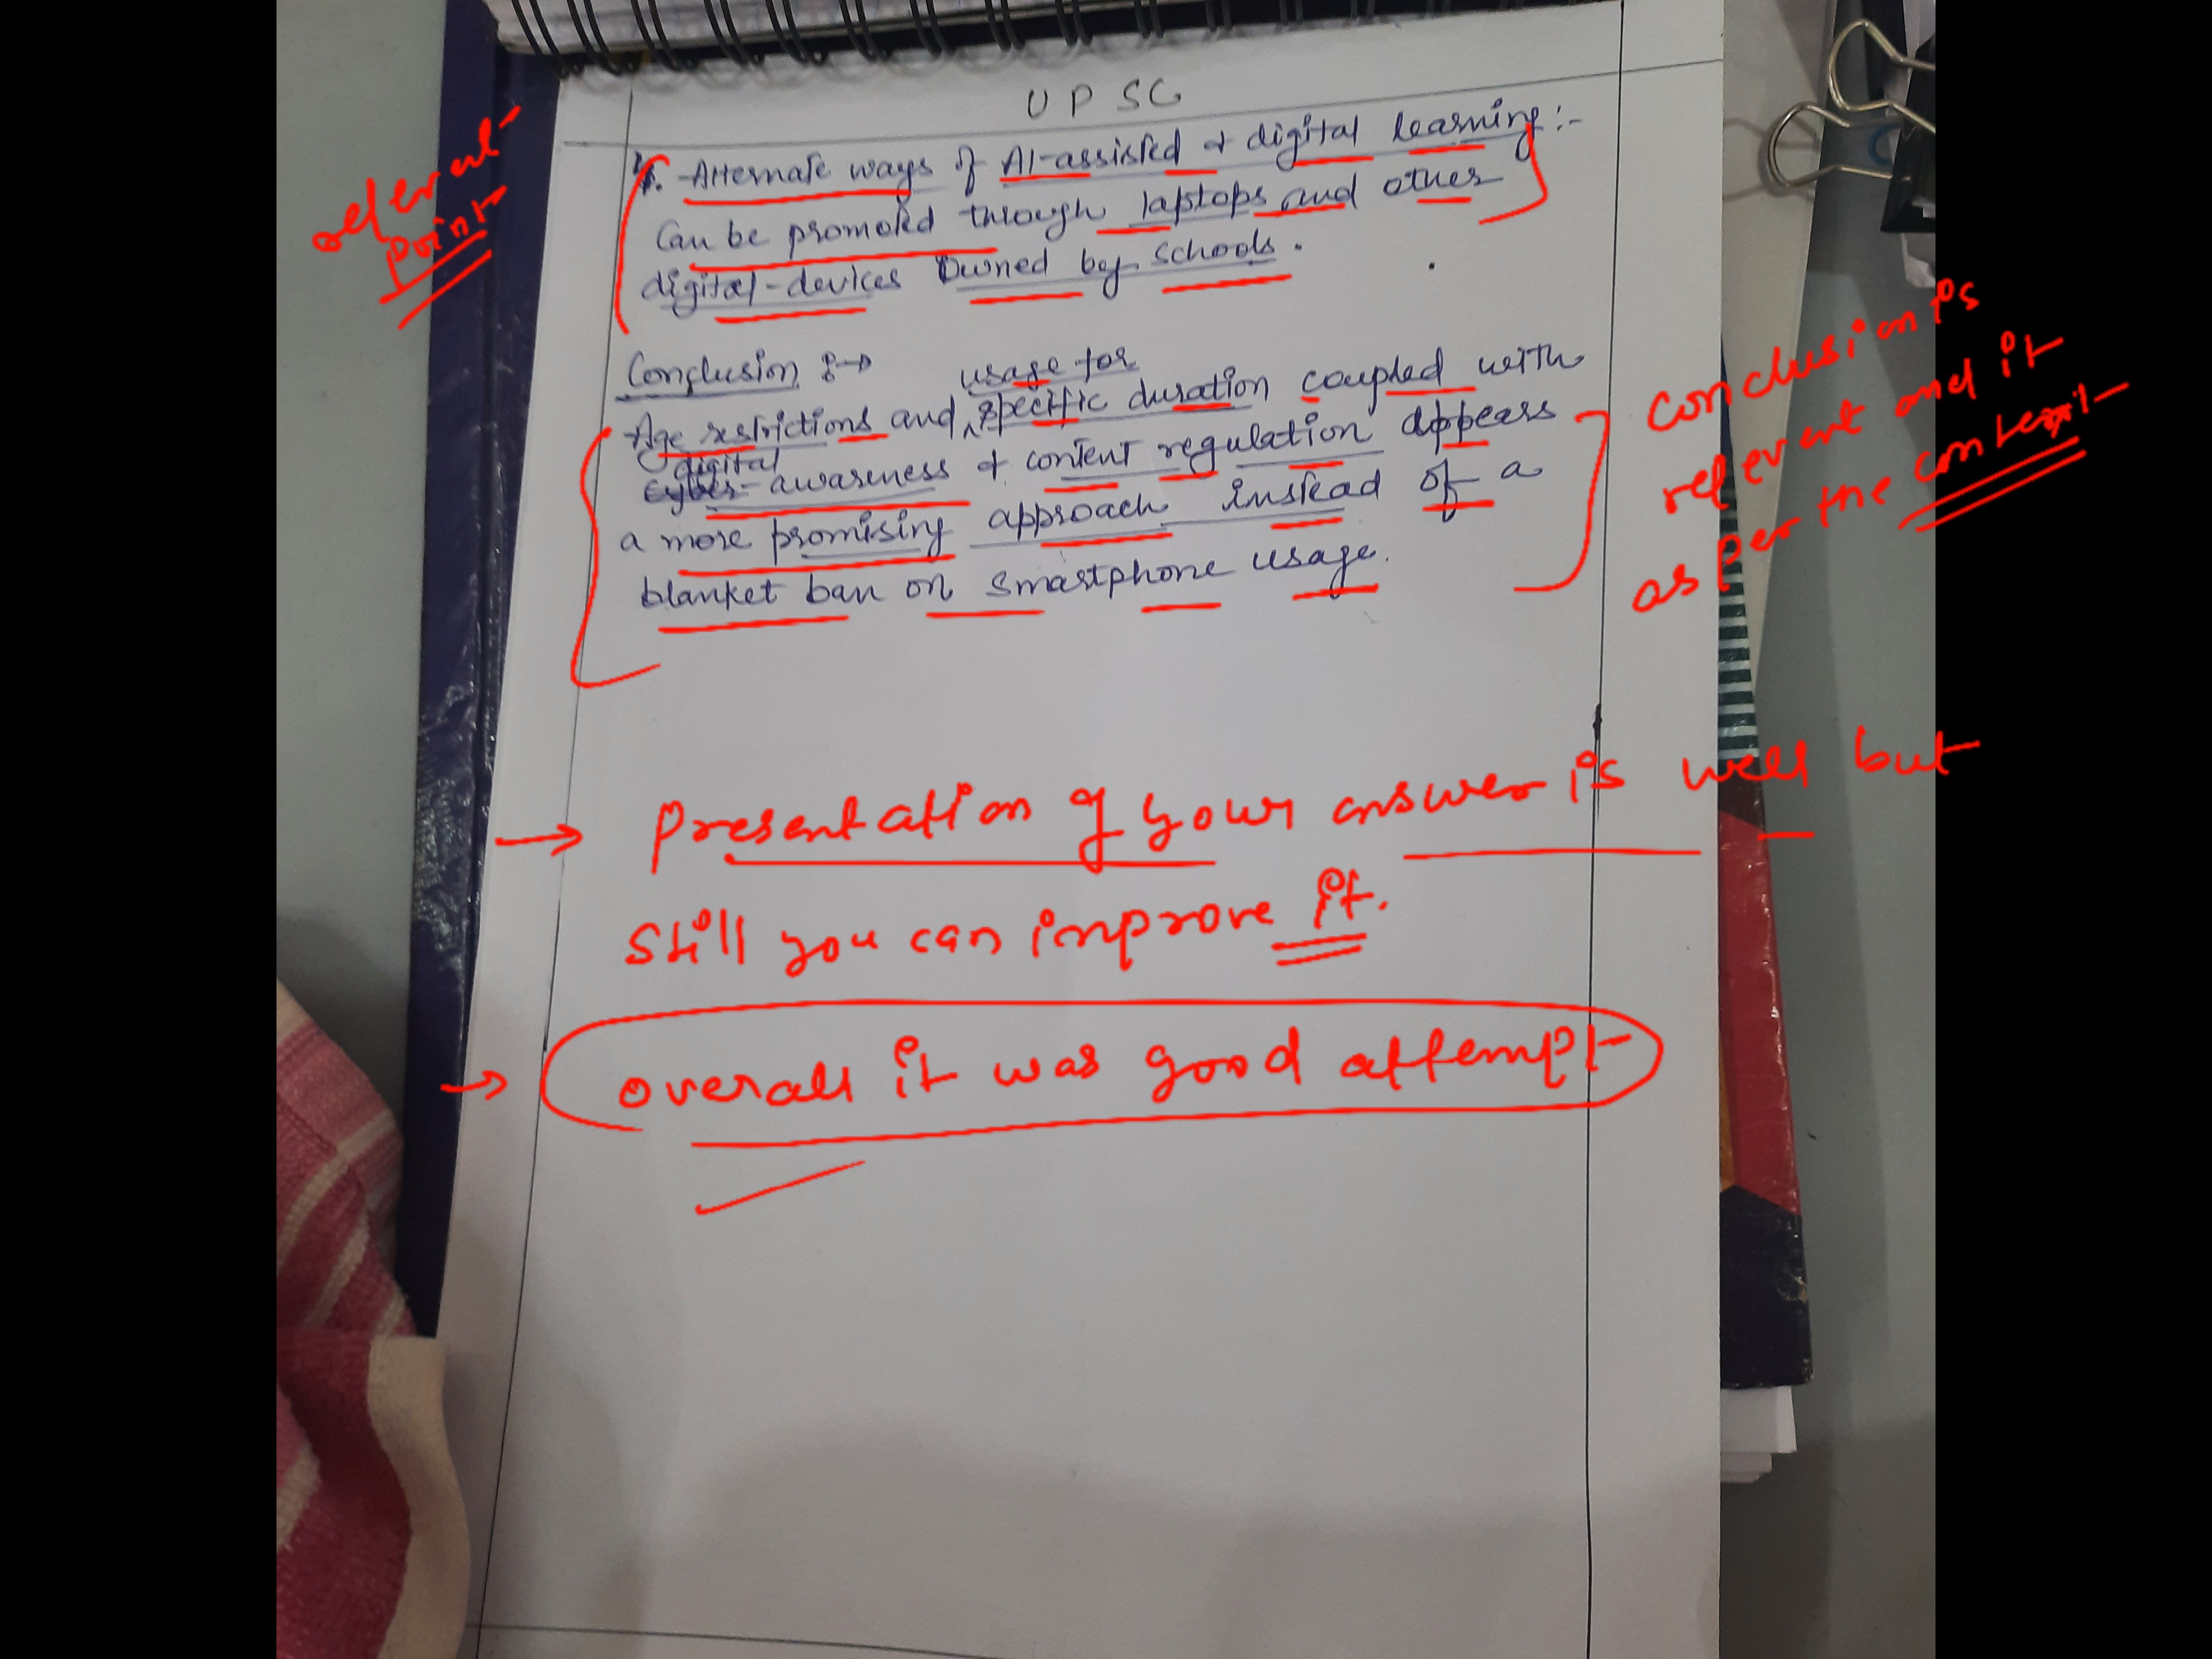 UPSC
4. Alternate ways of AI-assisted & digital learning:-
Can be promoted through laptops and other
digital-devices owned by schools.
referal
point
Conclusion :→
usage for
Age restrictions and specific duration coupled with
digital
cyber-awareness & content regulation appears
a more promising approach instead of a
blanket ban on smartphone usage.
conclusion is
relevent and it
as per the context
→ Presentation of your answer is well but
still you can improve it.
→ overall it was good attempt